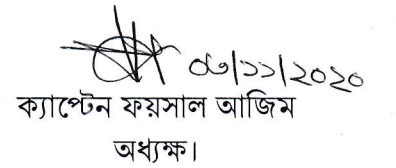 ০৩/১১/২০২০
ক্যাপ্টেন ফয়সাল আজিম
অধ্যক্ষ।